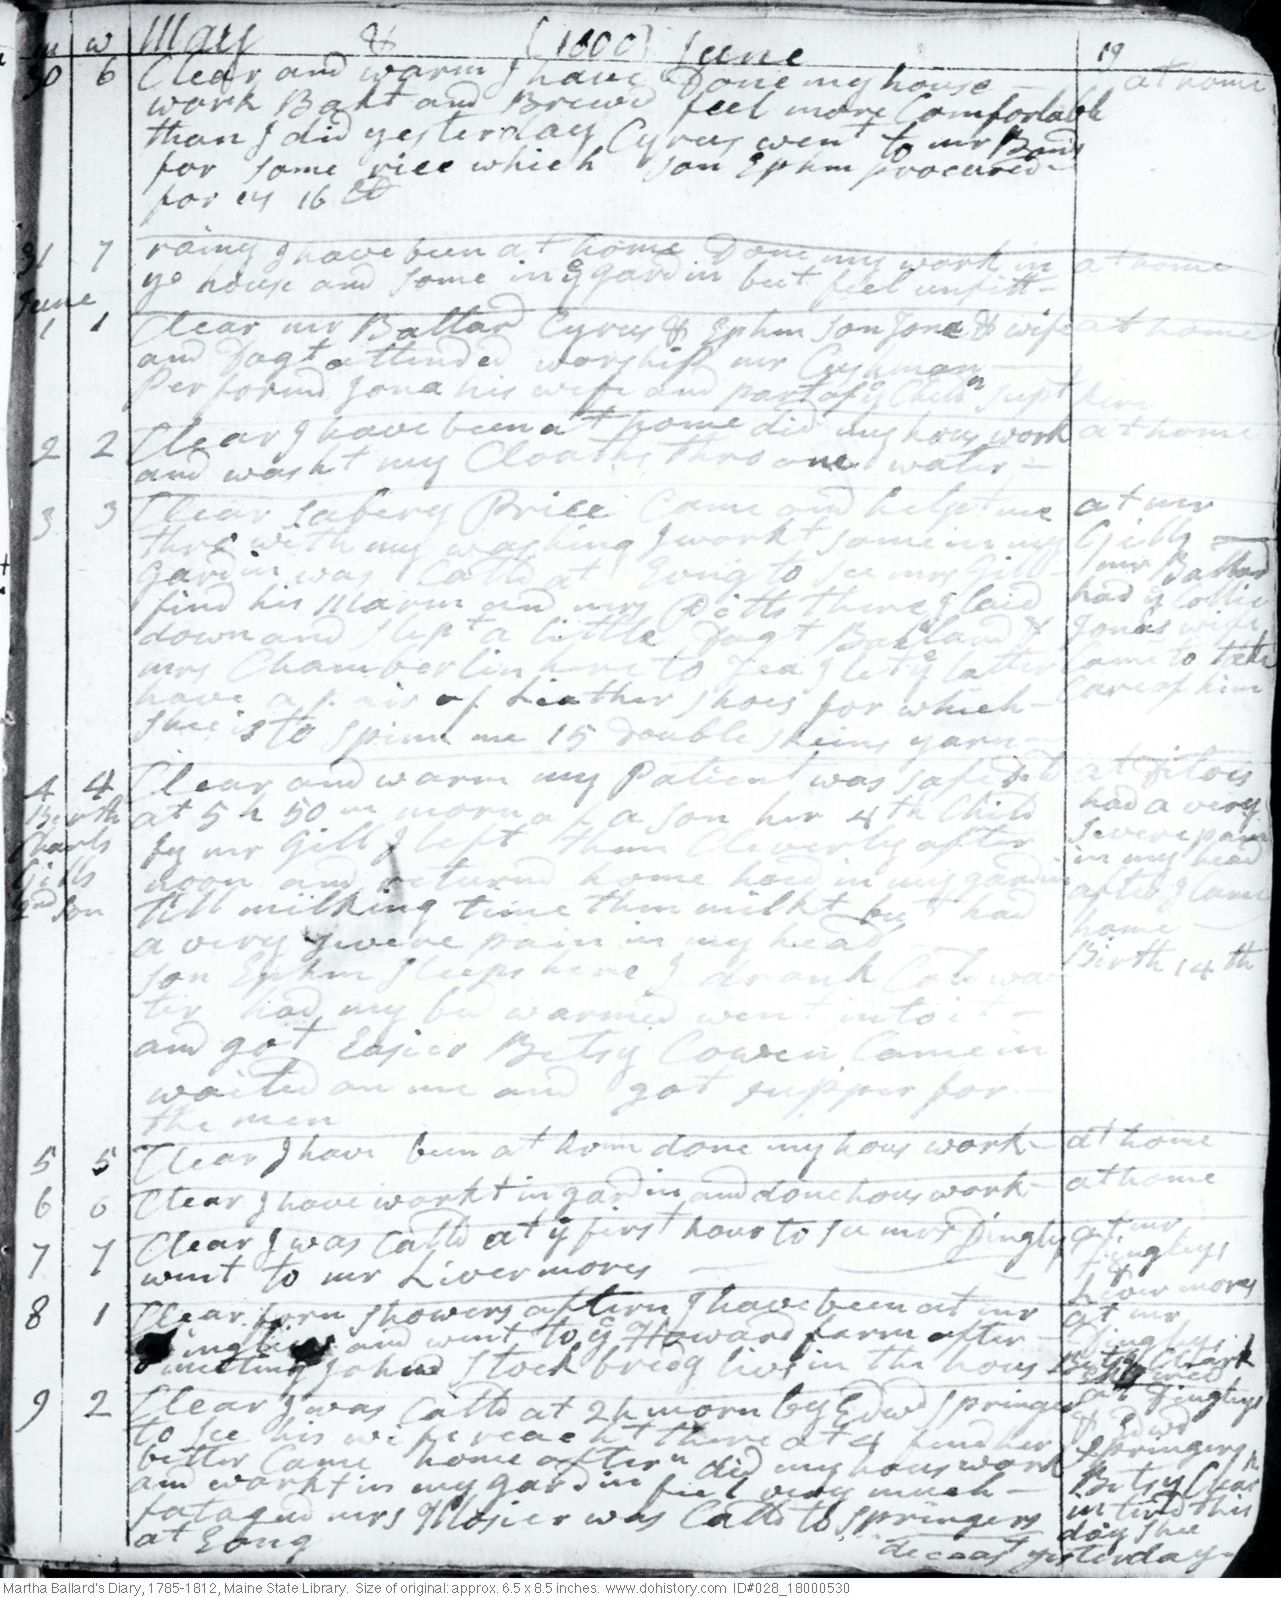 m w May & (1800) June 19
30 6 Clear and warm I have Done my house at home
work Bakt and Brewd feel more Comfortable
than I did yesterday Cyrus went to mr Bonds
for some rice which son Ephm procured
for us 16 lb
31 7 rainy I have been at home Done my work in at home
ye house and some in ye gardin but feel unfitt
June
1 1 Clear mr Ballard Cyrus & Ephm son Jona & wife at home
and Dagt attended worship mr Cushman
Performd Jona his wife and part of ye Childn supt here
2 2 Clear I have been at home did my hous work at home
and washt my Cloaths thro one water
3 3 Clear Sabery Price Came and helpt me at mr
thro with my washing I workt some in my Gills
Gardin was Calld at Evng to see mrs Gill mr Ballard
find his Marm and mrs Pitts there I laid had ye Collic
down and slept a little Dagt Ballard & Jonas wife
mrs Chamberlin here to Tea I let ye latter Came to take
have a pair of Leather shoes for which Care of him
shee is to spinn me 15 double skeins yarn
4 4 Clear and warm my Patient was safe dd at ditoes
Berth at 5 h 50 m morn of a son her 4th Child had a very
Charls by mr Gill I left them Cleverly after severe pain
Gills noon and returnd home hoed in my gardin in my head
2nd son till milking time then milkt but had after I Came
a very severe pain in my head home
son Ephm sleeps here I drank Cold wa Birth 14th
ter had my bed warmed went into it
and got Easier Betsy Cowen Came in
waited on me and got supper for
the men
5 5 Clear I have been at home done my hous work at home
6 6 Clear I have workt in gardin and done hous work at home
7 7 Clear I was Calld at ye first hour to see mrs Dingly at mr
went to mr Livermores Dingleys
& Liver mores
8 1 Clear forn showers aftern I have been at mr at mr
Dingleys and went to ye Howard farm after Dingleys
meeting John Stockbridg lives in the hous Betsy Clark
Expired
9 2 Clear I was Calld at 2 h morn by Edwd Springer at Dingleys
to see his wife reacht there at 4 find her & Edwd
better Came home aftern did my hous work Springers
and workt in my gardin feel very much Betsy Clark
fatagud mrs Mosier was Calld to Springers intird this
at Evng day shee
deceast yesterday
Martha Ballard's Diary, 1785-1812, Maine State Library. Size of original: approx. 6.5 x 8.5 inches. www.dohistory.com ID#028_18000530